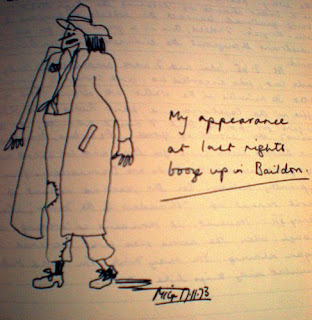 My appearance
at last nights
booze up in Baildon.
17.11.73